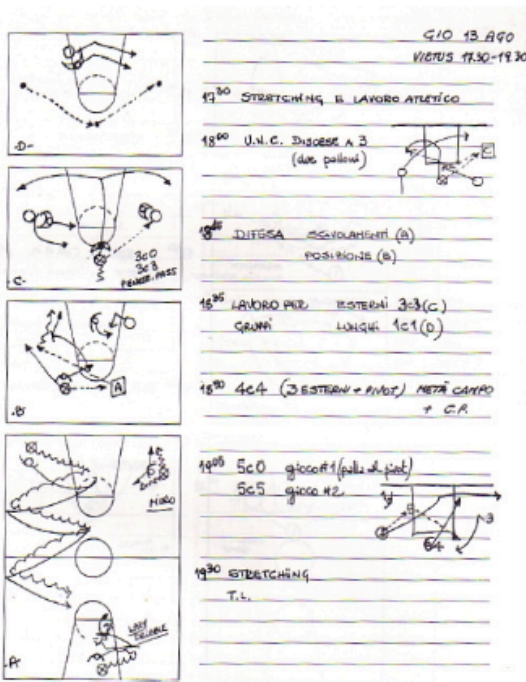 GIO 13 AGO
VIRTUS 17.30-19.30
17 30 STRETCHING E LAVORO ATLETICO
18 00 U.N.C. DISCESE A 3
(due palloni)
DIFESA SCIVOLAMENTI (A)
POSIZIONE (B)
LAVORO PER ESTERNI 3c3 (C)
GRUPPI LUNGHI 1c1 (D)
4c4 (3 ESTERNI + PIVOT) METÀ CAMPO
+ C.P.
19 05 5c0 gioco #1 (palla al pivot)
5c5 gioco #2
19 30 STRETCHING
T.L.
-D-
3c0
3c3
PENETR. PASS
-C-
A
-B-
MURO
LAZY
DRIBBLE
-A-
C
3